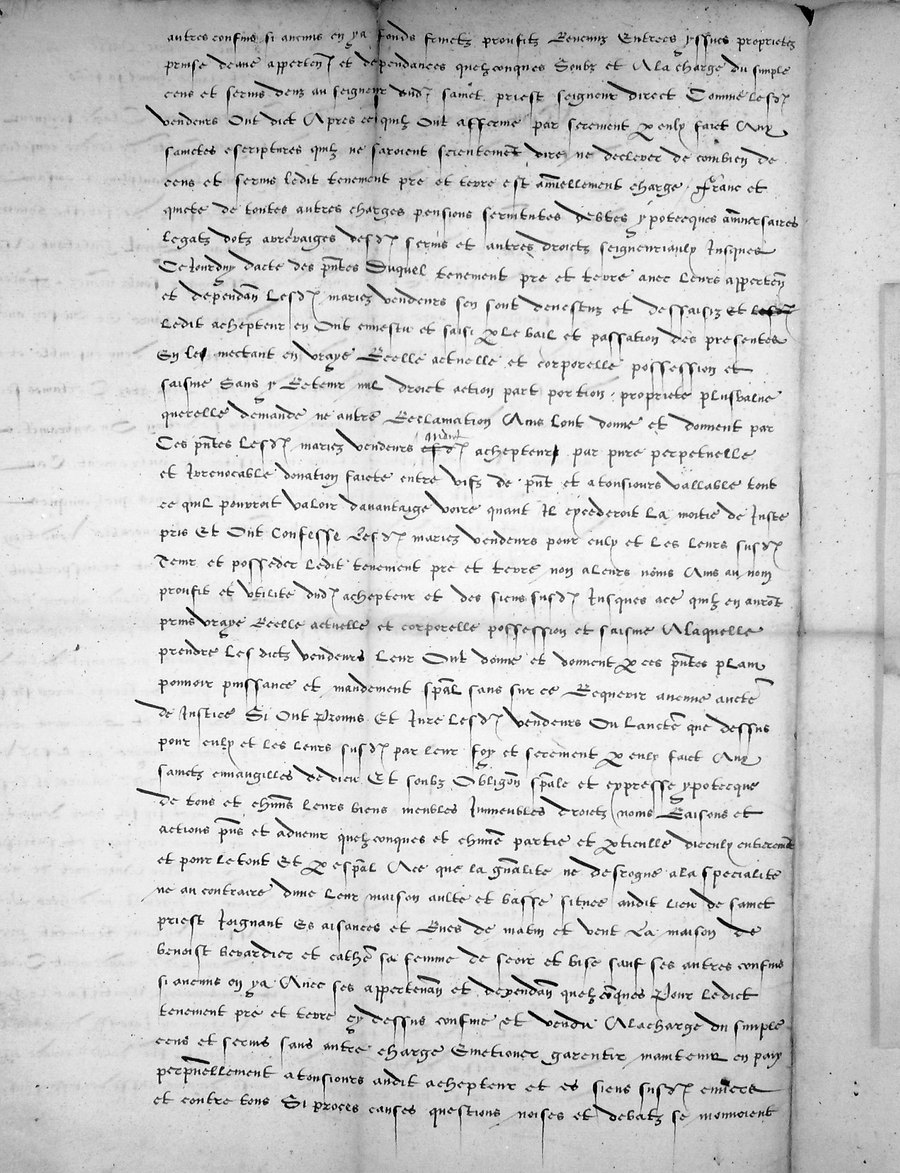 autres confins si aucuns en y a fonds fruictz prouffitz Revenuz Entrees yssues proprietez
prinse deaue apperten et deppendances quelzconques Soubz et A la charge du simple
cens et servis deuz au seigneur dud sainct priest seigneur direct Comme lesd
vendeurs Ont dict Apres ce quilz Ont afferme par serement p eulx faict Aux
sainctes escriptures quilz ne saroient scientement dire ne declerer de combien de
cens et servis ledit tenement pre et terre est annuellement charge Franc et
quicte de toutes autres charges pensions servitutes debtes ypotecques anniversaires
legatz dotz arreraiges desd servis et autres droictz seigneuriaulx Jusques
Ce Jourdhuy dacte des pntes Duquel tenement pre et terre avec leurs apperten
et deppendan Lesd mariez vendeurs sen sont devestuz et dessaisiz Et
Ledit achepteur en Ont envestu et saisi p Le bail et passation des presentes
En le mectant en vraye Reelle actuelle et corporelle possession et
saisine Sans y Retenir nul droict action part portion propriete plusvalue
querelle demande ne autre Reclamation Ains Lont donne et donnent par
Ces pntes Lesd mariez vendeurs audit achepteur par pure perpetuelle
et Irrevocable donation faicte entre vifz de pnt et a tousiours vallable tout
ce quil pouvroit valoir davantaige voire quant Il excederoit La moitie de Juste
pris Et Ont Confesse Lesd mariez vendeurs pour eulx et Les Leurs susd
Tenir et posseder Ledit tenement pre et terre non a Leurs noms Ains au nom
prouffit et utilite dud achepteur et des siens susd Jusques a ce quilz en auront
prins vraye Reelle actuelle et corporelle possession et saisine A laquelle
prendre Les dictz vendeurs Leur Ont donne et donnent p ces pntes plain
pouvoir puissance et mandement spal sans sur ce Requerir aucune aucte
de Justice Si Ont Promis Et Jure Lesd vendeurs Ou Laucte que dessus
pour eulx et les leurs susd par leur foy et serement p eulx faict Aux
sainctz euvangilles de dieu Et soubz Obligon spale et expresse ypotecque
De tous et chuns Leurs biens meubles Immeubles droictz noms Raisons et
actions pns et advenir quelzconques et chune partie et pticulle diceulx entierement
et pour le tout Et p espal A ce que la gnalite ne desrogue a la specialite
ne au contraire dune Leur maison aulte et basse scituee audit Lieu de sainct
priest Joignant Es aisances et Rues de matin et vent La maison de
benoist berardier et cathe sa femme de seoir et bise sauf ses autres confins
si aucuns en y a Avec ses appertenan et deppendan quelzconques Pour Ledict
tenement pre et terre cy dessus confine et vendu A la charge du simple
cens et servis sans autre charge Emetioner garentir maintenir en paix
perpetuellement a tousiours audit achepteur et es siens susd envers
et contre tous Si proces causes questions noises et debatz se mouvoient